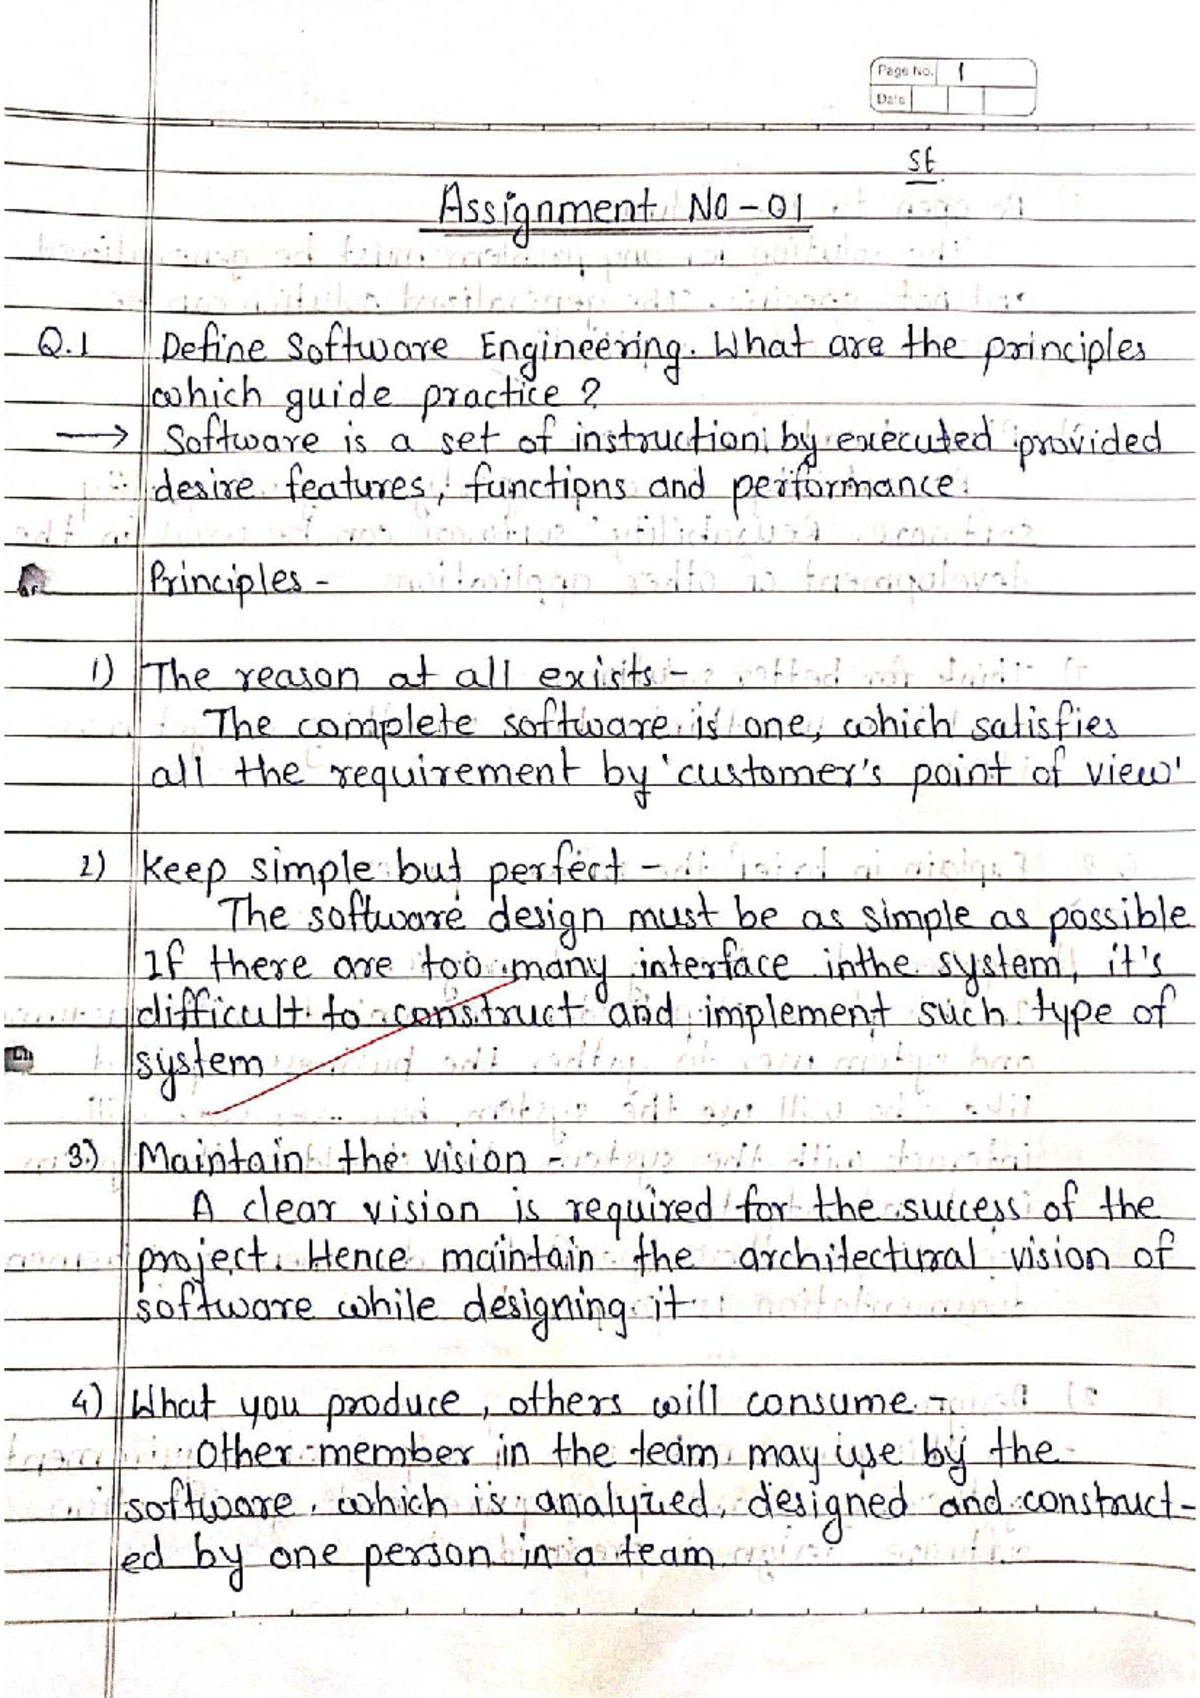 Page No. 1
Date
SE
Assignment No-01
Q.1 Define Software Engineering. What are the principles
which guide practice?
→ Software is a set of instruction by executed provided
desire features, functions and performance.
Principles -
1) The reason at all exists -
The complete software is one, which satisfies
all the requirement by 'customer's point of view'
2) Keep simple but perfect -
The software design must be as simple as possible
If there are too many interface inthe system, it's
difficult to construct and implement such type of
system
3.) Maintain the vision -
A clear vision is required for the success of the
project. Hence maintain the architectural vision of
software while designing it
4) What you produce, others will consume. -
Other member in the team may use by the
software. which is analyzed, designed and construct-
ed by one person in a team